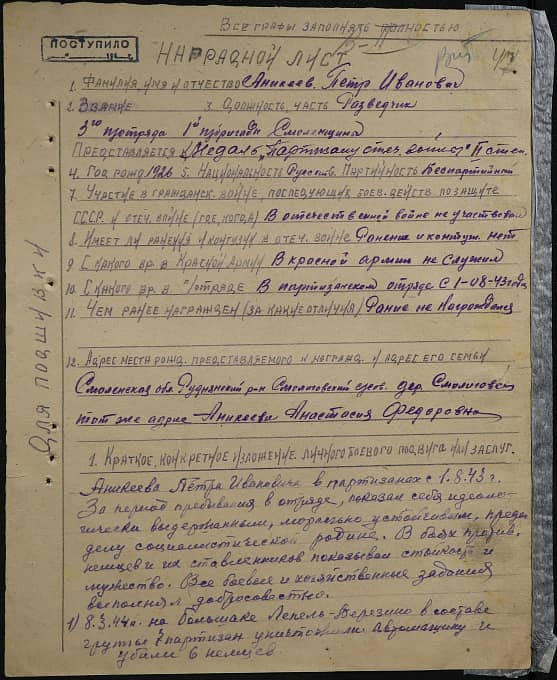 Все графы заполнять полностью
ПОСТУПИЛО
НАГРАДНОЙ ЛИСТ
1. Фамилия имя и отчество Аникеев Петр Иванович
2. Звание 3. Должность, часть Разведчик
3го п/отряда 1й п/бригады Смоленщина
Представляется к Медаль "Партизану отеч. войны" II степ.
4. Год рожд 1926 5. Национальность Русский. Партийность Беспартийный
7. Участие в гражданск. войне, последующих боев. действ. по защите
СССР и отеч. войне (где, когда) В отечественной войне не участвовал
8. Имеет ли ранения и контузии в отеч. войне Ранения и контуз. нет
9 С какого вр. в Красной Армии В красной армии не служил
10. С какого вр. в п/отряде В партизанском отряде с 1-08-43 года
11. Чем ранее награжден (за какие отличия) Ранее не награждался
12. Адрес места рожд. представляемого к наград. и адрес его семьи
Смоленская обл Руднянский р-н дер.
тот же адрес Аникеева Анастасия Федоровна
Для подшивки
1. Краткое, конкретное изложение личного боевого подвига или заслуг.
Аникеева Пётра Ивановича в партизанах с 1.8.43 г.
За период пребывания в отряде, показал себя идеоло-
гически выдержанным, морально устойчивым, предан
делу социалистической родине. В боях против
немцев и их ставленников показывал стойкость и
мужество. Все боевые и хозяйственные задания
выполнял добросовестно.
1) 8.3.44г. на большаке Лепель-Березино в составе
группы 7 партизан уничтожили автомашину и
убили 6 немцев.